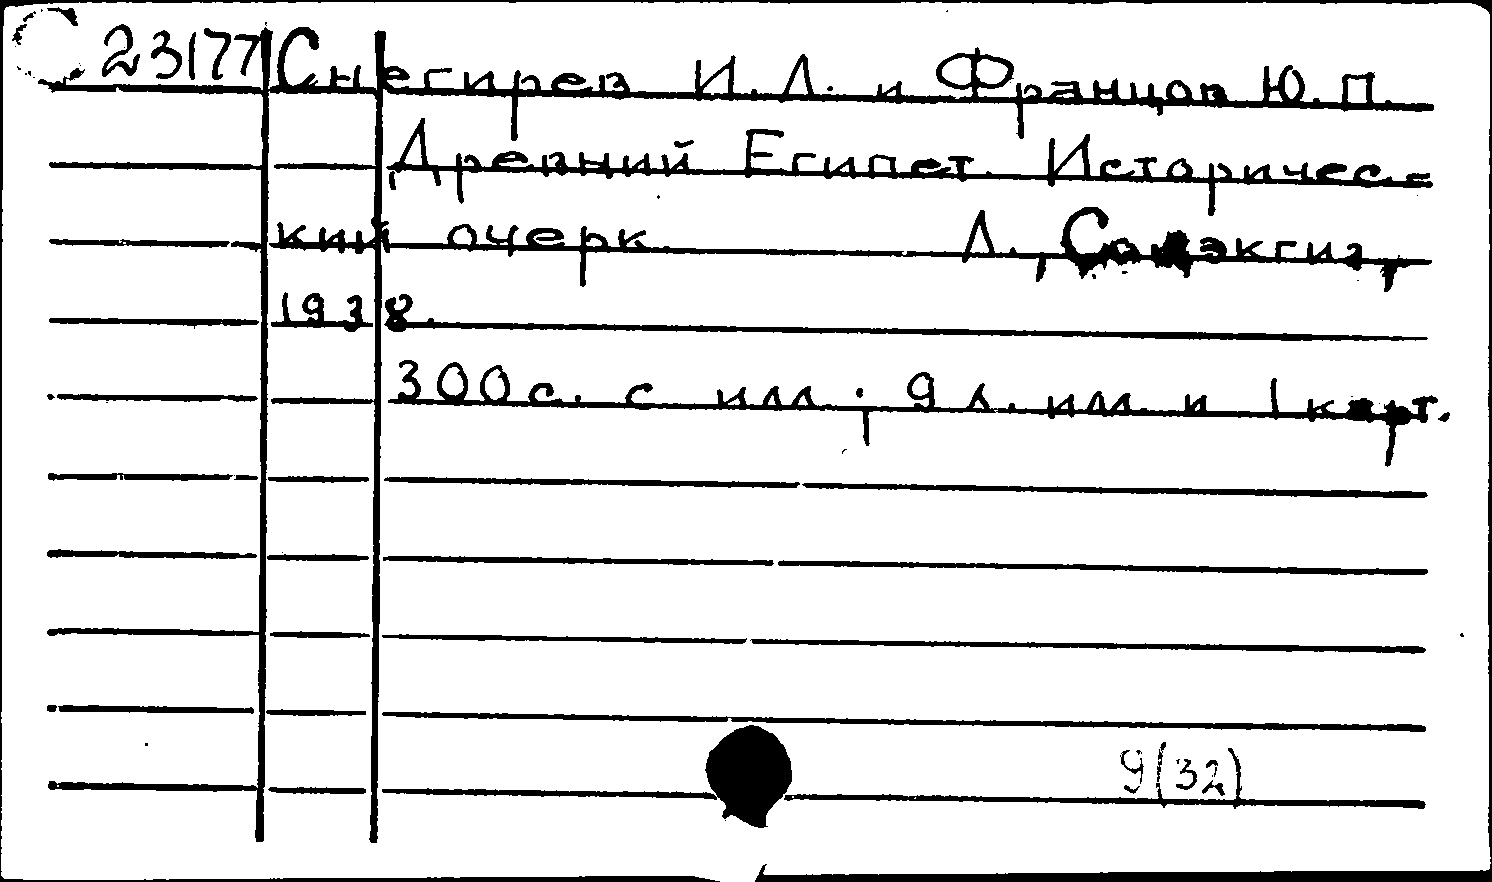 С 23177 Снегирев И. Л. и Францов Ю. П.
Древний Египет. Историчес-
кий очерк. Л., Соцэкгиз,
1938.
300 с. с илл.; 9 л. илл. и 1 карт.
9(32)